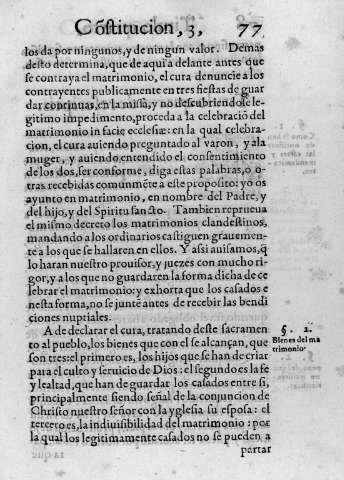 Cõstitucion, 3, 77
los da por ningunos, y de ningun valor. Demas
desto determina, que de aqui a delante antes que
se contraya el matrimonio, el cura denuncie a los
contrayentes publicamente en tres fiestas de guar
dar continuas, en la missa, y no descubriendose le-
gitimo impedimento, proceda a la celebració del
matrimonio in facie ecclesiæ: en la qual celebra-
cion, el cura auiendo preguntado al varon, y a la
muger, y auiendo entendido el consentimiento
de los dos, ser conforme, diga estas palabras, o o-
tras recebidas comunmēte a este proposito: yo os
ayunto en matrimonio, en nombre del Padre, y
del hijo, y del Spiritu sancto. Tambien reprueua
el mismo decreto los matrimonios clandestinos,
mandando a los ordinarios castiguen grauemen-
te a los que se hallaren en ellos. Y assi auisamos, q̃
lo haran nuestro prouisor, y juezes con mucho ri-
gor, y a los que no guardaren la forma dicha de ce
lebrar el matrimonio: y exhorta que los casados e
nesta forma, no se junté antes de recebir las bendi
ciones nuptiales.
A de declarar el cura, tratando deste sacramen
to al pueblo, los bienes que con el se alcançan, que
son tres: el primero es, los hijos que se han de criar
para el culto y seruicio de Dios: el segundo es la fe
y lealtad, que han de guardar los casados entre si,
principalmente siendo señal de la conjuncion de
Christo nuestro señor con la yglesia su esposa: el
tercero es, la indiuisibilidad del matrimonio: por
la qual los legitimamente casados no se pueden a
partar
§. 2.
Bienes del ma
trimonio